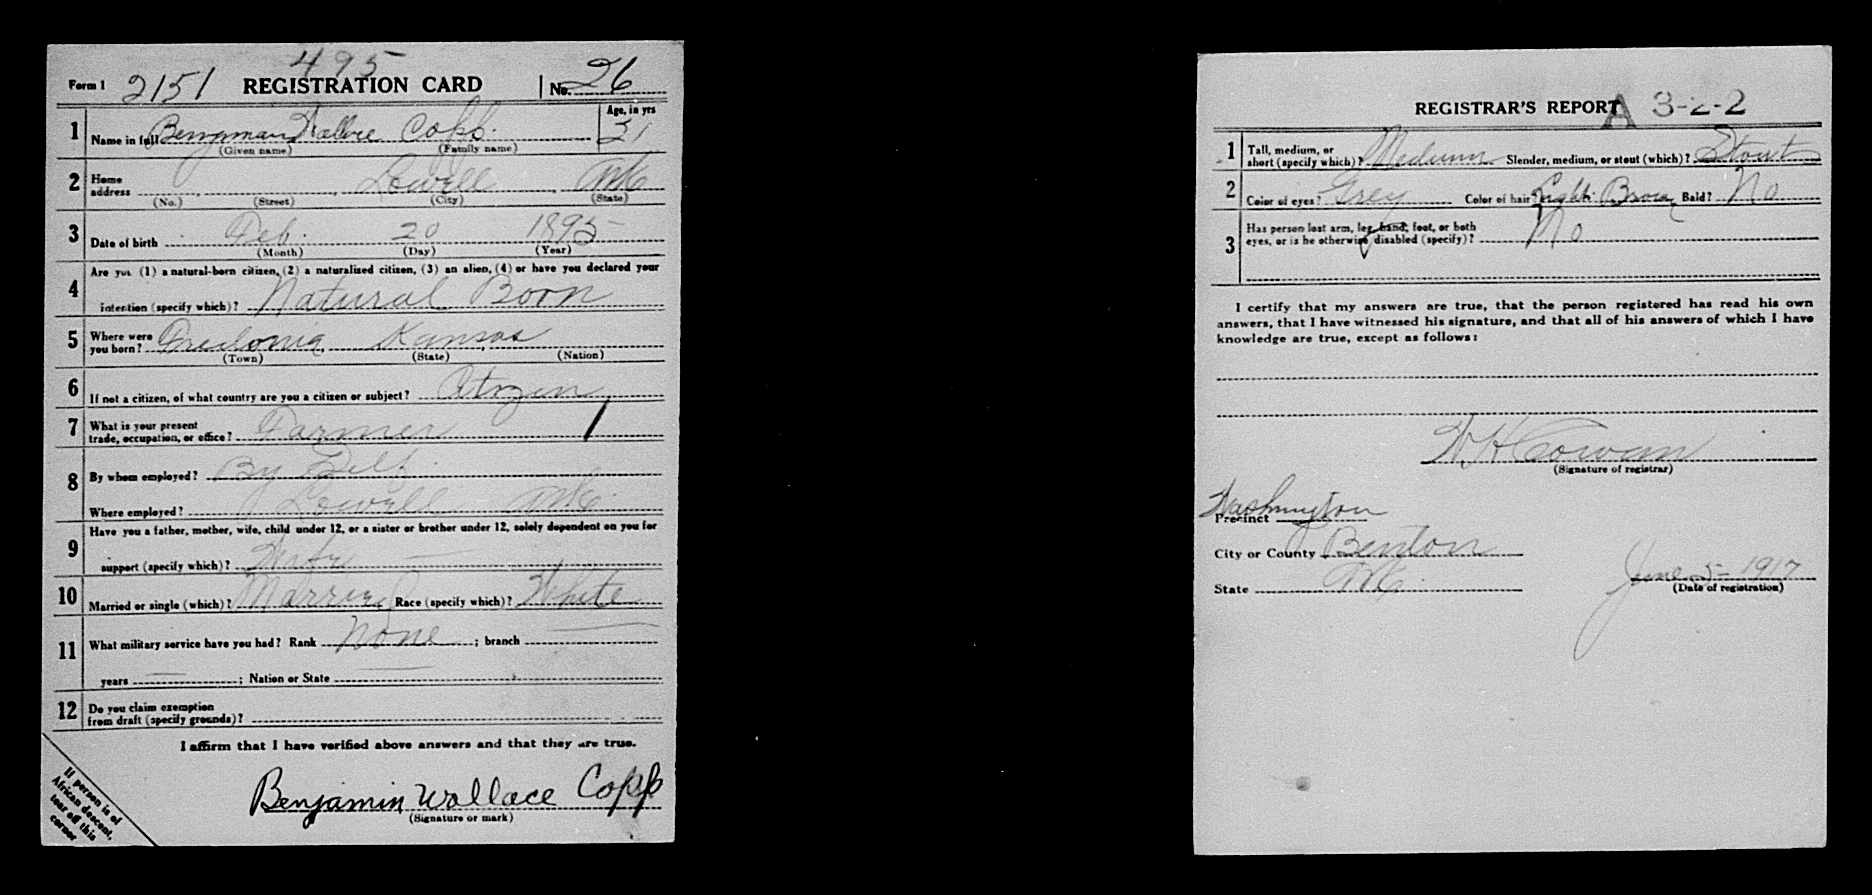 495
Form 1 2151 REGISTRATION CARD No. 26
Age, in yrs
1 Name in full Bengman Wallace Copp. 21
(Given name) (Family name)
2 Home address Lowell Ark
(No.) (Street) (City) (State)
3 Date of birth Feb. 20 1895
(Month) (Day) (Year)
4 Are you (1) a natural-born citizen, (2) a naturalized citizen, (3) an alien, (4) or have you declared your
intention (specify which)? Natural Boon
5 Where were you born? Fredonia, Kansas
(Town) (State) (Nation)
6 If not a citizen, of what country are you a citizen or subject?
7 What is your present trade, occupation, or office? Farmer
8 By whom employed? By Self.
Where employed? Lowell Ark.
9 Have you a father, mother, wife, child under 12, or a sister or brother under 12, solely dependent on you for
support (specify which)? Wife
10 Married or single (which)? Married Race (specify which)? White
11 What military service have you had? Rank None ; branch
years ; Nation or State
12 Do you claim exemption
from draft (specify grounds)?
I affirm that I have verified above answers and that they are true.
Benjamin Wallace Copp
(Signature or mark)
If person is of
African descent,
tear off this
corner
REGISTRAR'S REPORT A 3-2-2
1 Tall, medium, or
short (specify which)? Medium Slender, medium, or stout (which)? Stout
2 Color of eyes? Grey Color of hair? Light Brown Bald? No
3 Has person lost arm, leg, hand, foot, or both
eyes, or is he otherwise disabled (specify)? No
I certify that my answers are true, that the person registered has read his own
answers, that I have witnessed his signature, and that all of his answers of which I have
knowledge are true, except as follows:
W. H Cowan
(Signature of registrar)
Precinct Washington
City or County Benton
State Ark.
June 5- 1917
(Date of registration)